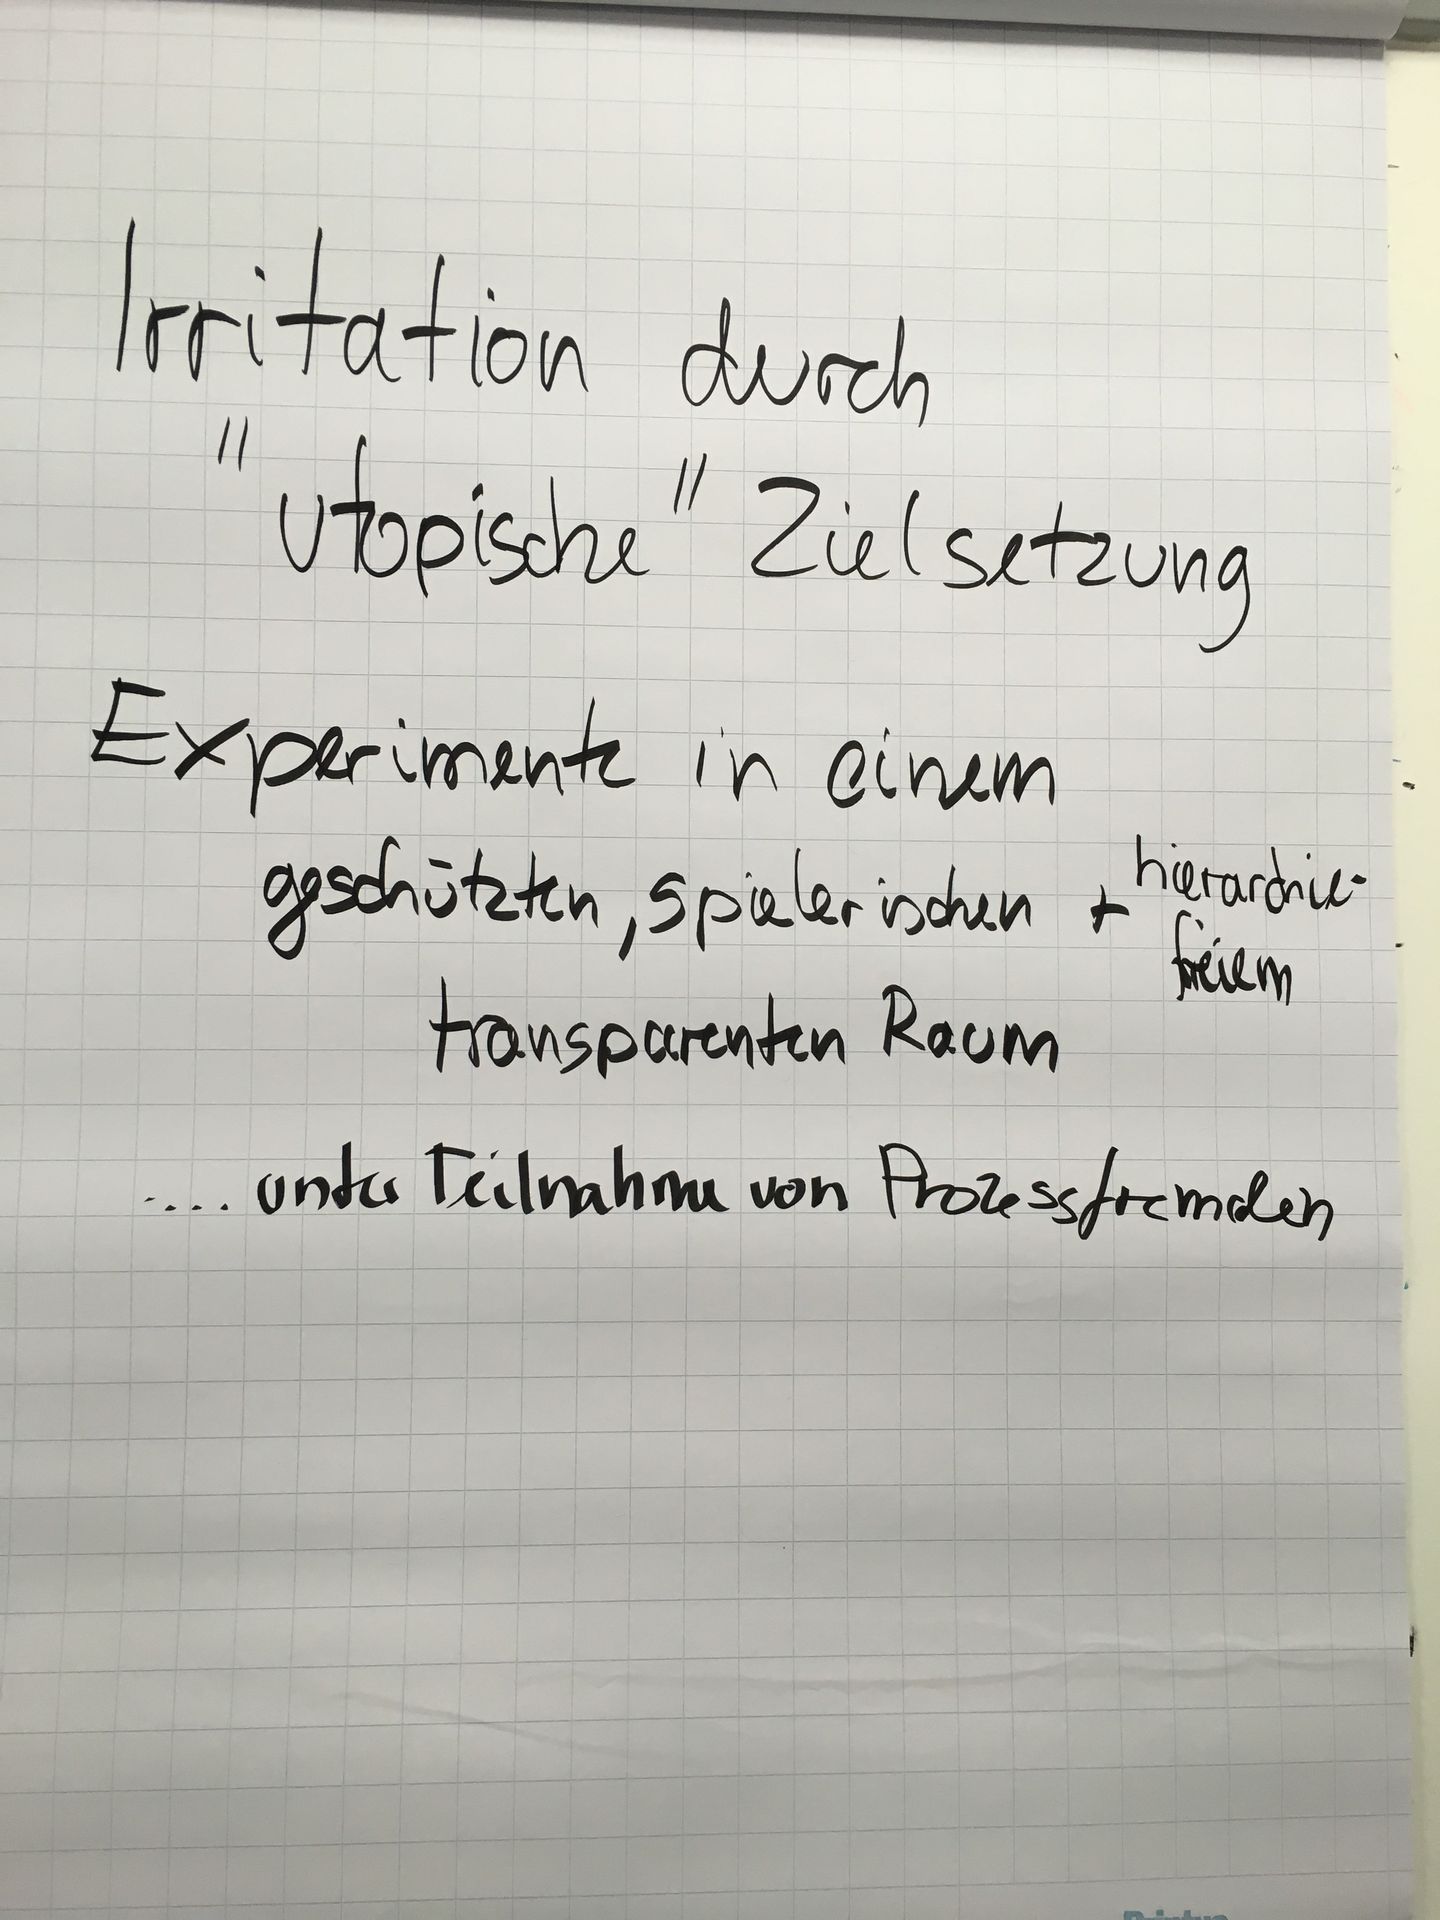 Irritation durch
"utopische" Zielsetzung
Experimente in einem
geschützten, spielerischen + hierarchie-
freiem
transparenten Raum
.... unter Teilnahme von Prozessfremden
Printus